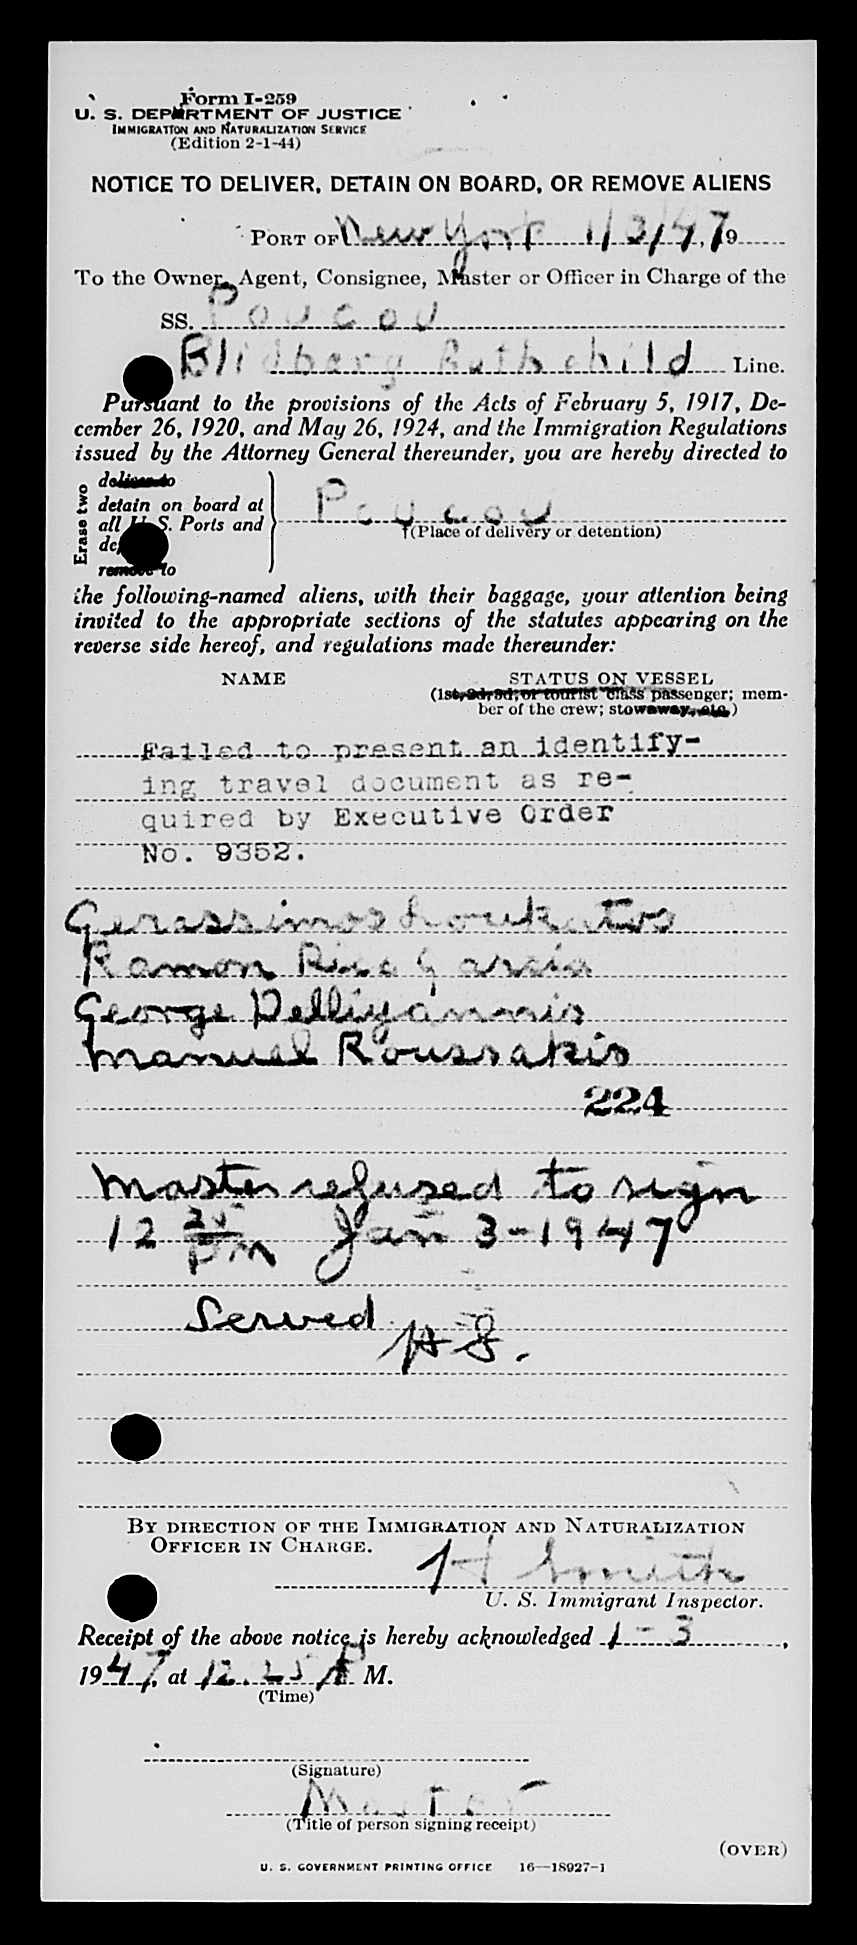 Form I-259
U. S. DEPARTMENT OF JUSTICE
IMMIGRATION AND NATURALIZATION SERVICE
(Edition 2-1-44)
NOTICE TO DELIVER, DETAIN ON BOARD, OR REMOVE ALIENS
PORT OF New York 1/3/47, 19
To the Owner, Agent, Consignee, Master or Officer in Charge of the
SS. Poucou
Blidberg Rothchild Line.
Pursuant to the provisions of the Acts of February 5, 1917, De-
cember 26, 1920, and May 26, 1924, and the Immigration Regulations
issued by the Attorney General thereunder, you are hereby directed to
Erase two
deliver to
detain on board at
all U. S. Ports and
Poucou
(Place of delivery or detention)
remove to
the following-named aliens, with their baggage, your attention being
invited to the appropriate sections of the statutes appearing on the
reverse side hereof, and regulations made thereunder:
NAME STATUS ON VESSEL
(1st, 2d, 3d, or tourist class passenger; mem-
ber of the crew; stowaway, etc.)
Failed to present an identify-
ing travel document as re-
quired by Executive Order
No. 9352.
Gerassimos Loukatos
Ramon Rico Garcia
George Delliyannis
Manuel Roussakis
224
Master refused to sign
12 25 PM Jan 3-1947
Served HS.
BY DIRECTION OF THE IMMIGRATION AND NATURALIZATION
OFFICER IN CHARGE.
H Smith
U. S. Immigrant Inspector.
Receipt of the above notice is hereby acknowledged 1-3,
1947, at 12.25 P M.
(Time)
(Signature)
Master
(Title of person signing receipt)
(OVER)
U. S. GOVERNMENT PRINTING OFFICE 16—18927-1